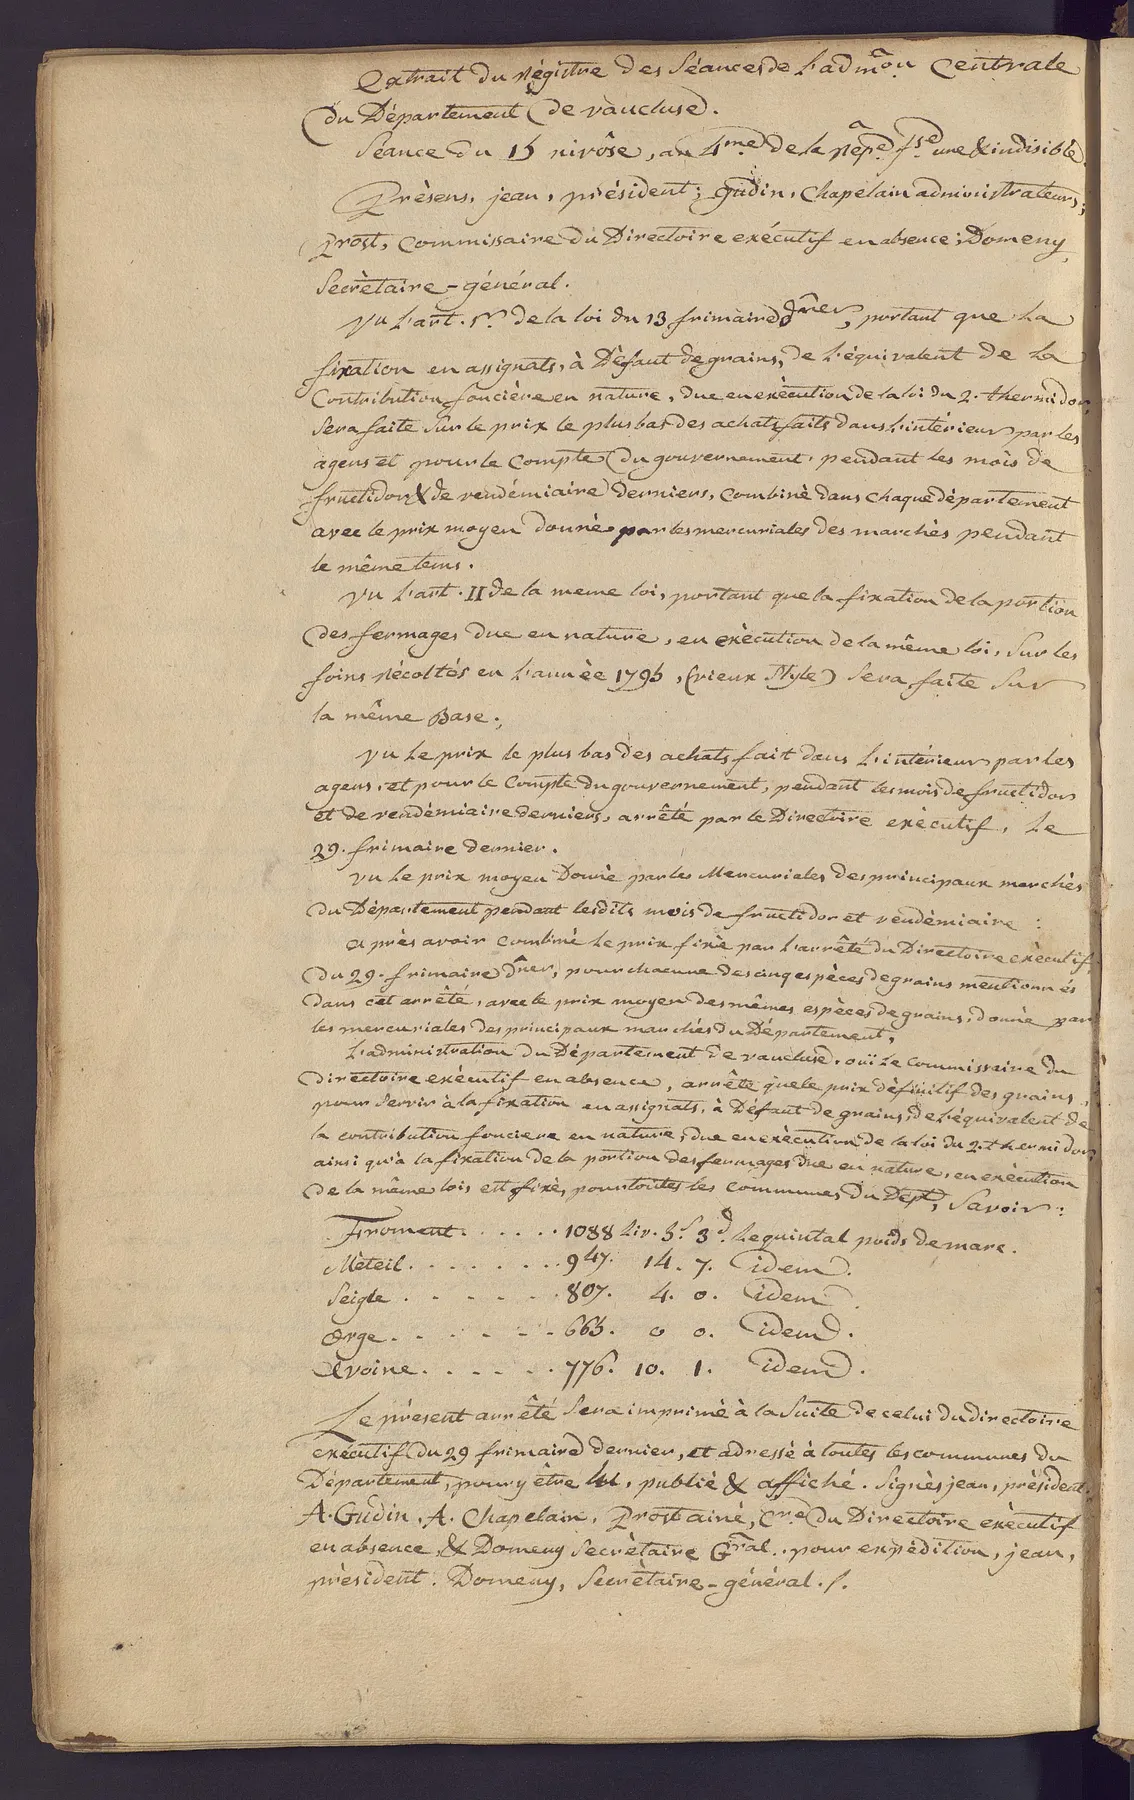 Extrait du régistre des Séances de L'adm.on Centrale
du Département de vaucluse.
Séance du 15 nivôse, an 4me de la Repe fse une & indisible.
Présens, jean, président; gudin, chapelain administrateurs;
prost, Commissaire du Directoire exécutif en absence; Domeny,
Secrètaire-général.
Vu L'art. 1er de la loi du 13 frimaire dner, portant que La
fixation en assignats, à Défaut de grains, de L'équivalent de La
Contribution foncière en nature, due en exècution de la loi du 2. thermidor,
Sera faite Sur le prix le plus bas des achats faits dans L'intérieur par les
agens et pour le Compte du gouvernement, pendant les mois de
fructidor & de vendémiaire derniers, Combiné dans chaque département
avec le prix moyen donné par les mercuriales des marchés pendant
le même tems.
Vu L'art. II de la meme loi, portant que la fixation de la portion
des fermages due en nature, en exècution de la même loi, Sur les
foins récoltés en L'année 1795, (vieux Style) Sera faite Sur
la même Base;
Vu Le prix le plus bas des achats fait dans L'intérieur par les
agens, et pour le Compte du gouvernement, pendant les mois de fructidor
et de vendémiaire derniers, arrêté par le Directoire exécutif, Le
29. frimaire dernier.
Vu Le prix moyen Donné par les Mercuriales des principaux marchés
du Département pendant lesdits mois de fructidor et vendémiaire :
après avoir combiné Le prix fixé par L'arrêté du Directoire exècutif,
du 29. frimaire dner, pour chacune des cinq espèces de grains mentionnés
dans cet arrêté, avec le prix moyen des mêmes espèces de grains, donné par
les mercuriales des principaux marchés du Département,
L'administration du Département de vaucluse, ouï Le commissaire du
directoire exècutif en absence, arrête que le prix définitif des grains,
pour Servir à la fixation en assignats, à Défaut de grains, de L'équivalent de
la contribution fonciere en nature, due en exècution de la loi du 2. thermidor,
ainsi qu'à la fixation de la portion des fermages due en nature, en exècution
de la même loi, est fixé, pour toutes les communes du Dept, Savoir :
Froment . . . . . 1088 Liv. 5s. 3d. Le quintal poids de marc.
Méteil . . . . . . . 947. 14. 7. idem.
Seigle . . . . . . 807. 4. 0. idem
Orge . . . . . . 665. 0 0. idem.
Avoine . . . . . 776. 10. 1. idem.
Le présent arrêté Sera imprimé à la Suite de celui du directoire
exécutif du 29 frimaire dernier, et adressé à toutes les communes du
Département, pour y être lu, publié & affiché. Signés jean, président.
A. Gudin, A. Chapelain, Prost ainé, Cre du Directoire exècutif
en absence, & Domeny Secrètaire Gral. pour expédition, jean,
président. Domeny, Secrètaire-général./.